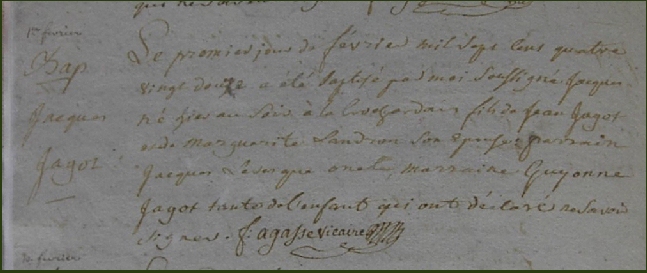 1er fevrier
Bap
Jacques
Jagot
Le premier jour de février mil sept cent quatre
vingt douze a été baptisé par moi soussigné Jacques
né hier au soir à la fils de Jean Jagot
et de Marguerite Landron son épouse parrain
Jacques Levesque oncle, marraine Guyonne
Jagot tante de l'enfant qui ont déclaré ne savoir
signer. f. agasse vicaire
fevrier